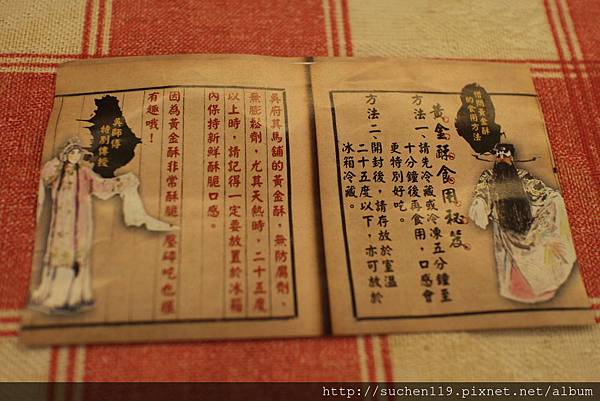 黃金酥
的食用方法
黃金酥食用秘笈
方法一、請先冷藏或冷凍五分鐘至
十分鐘後再食用，口感會
更特別好吃。
方法二、開封後，請存放於室溫
二十五度以下，亦可放於
冰箱冷藏。
吳府其馬舖的黃金酥，無防腐劑、
無膨松劑，尤其天熱時，二十五度
以上時，請記得一定要放置於冰箱
內保持新鮮酥脆口感。
因為黃金酥非常酥脆，壓碎吃也很
有趣哦！
吳師傅
特別傳授
http://suchen119.pixnet.net/album